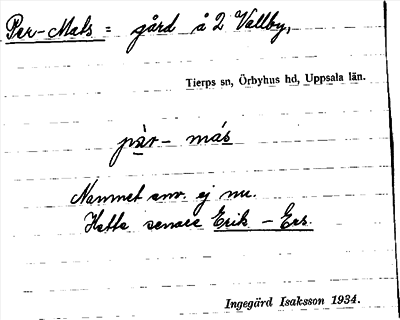 Per-Mats = gård å 2 Vallby,
Tierps sn, Örbyhus hd, Uppsala län.
pàr- más
Namnet anv. ej nu.
Hette senare Erik - Ers.
Ingegärd Isaksson 1934.